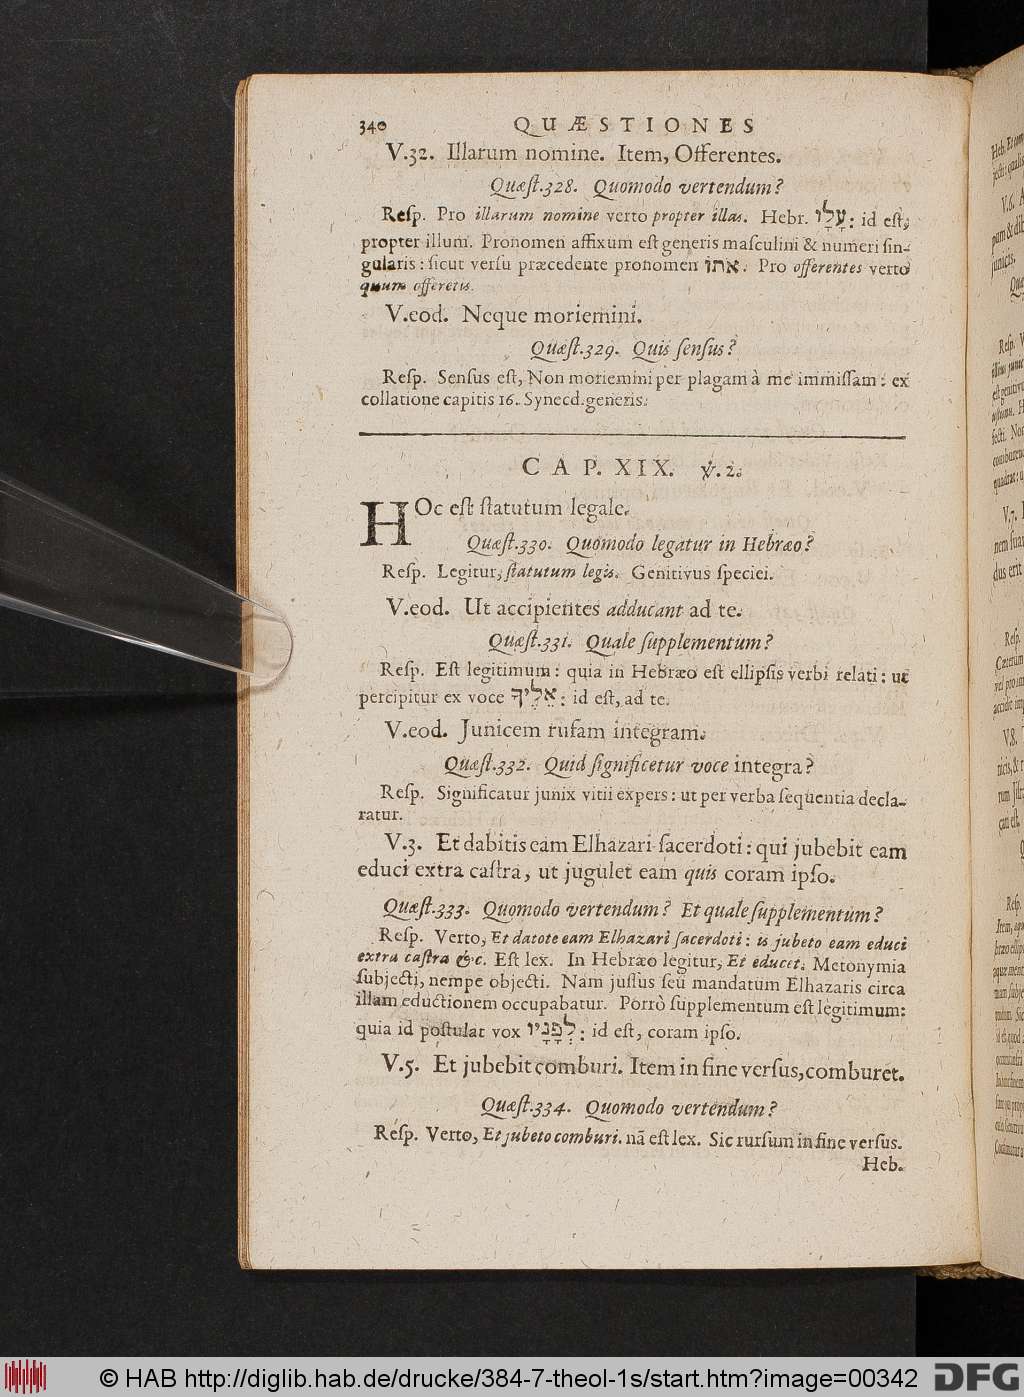 340 QUÆSTIONES
V.32. Illarum nomine. Item, Offerentes.
Quæſt.328. Quomodo vertendum?
Reſp. Pro illarum nomine verto propter illas. Hebr. עָלָו: id eſt,
propter illum. Pronomen affixum eſt generis maſculini & numeri ſin-
gularis: ſicut verſu præcedente pronomen אתו. Pro offerentes verto
quum offeretis.
V.eod. Neque moriemini.
Quæſt.329. Quis ſenſus?
Reſp. Senſus eſt, Non moriemini per plagam à me immiſſam: ex
collatione capitis 16. Synecd. generis.
CAP. XIX. ℣.2.
HOc eſt ſtatutum legale.
Quæſt.330. Quomodo legatur in Hebræo?
Reſp. Legitur, ſtatutum legis. Genitivus ſpeciei.
V.eod. Ut accipientes adducant ad te.
Quæſt.331. Quale ſupplementum?
Reſp. Eſt legitimum: quia in Hebræo eſt ellipſis verbi relati: ut
percipitur ex voce אֵלֶיךָ: id eſt, ad te.
V.eod. Junicem rufam integram.
Quæſt.332. Quid ſignificetur voce integra?
Reſp. Significatur junix vitii expers: ut per verba ſequentia decla-
ratur.
V.3. Et dabitis eam Elhazari ſacerdoti: qui jubebit eam
educi extra caſtra, ut jugulet eam quis coram ipſo.
Quæſt.333. Quomodo vertendum? Et quale ſupplementum?
Reſp. Verto, Et datote eam Elhazari ſacerdoti: is jubeto eam educi
extra caſtra &c. Eſt lex. In Hebræo legitur, Et educet. Metonymia
ſubjecti, nempe objecti. Nam juſſus ſeu mandatum Elhazaris circa
illam eductionem occupabatur. Porrò ſupplementum eſt legitimum:
quia id poſtulat vox לְפָנָיו: id eſt, coram ipſo.
V.5. Et jubebit comburi. Item in fine verſus, comburet.
Quæſt.334. Quomodo vertendum?
Reſp. Verto, Et jubeto comburi. nã eſt lex. Sic rurſum in fine verſus.
Heb.
© HAB http://diglib.hab.de/drucke/384-7-theol-1s/start.htm?image=00342
DFG